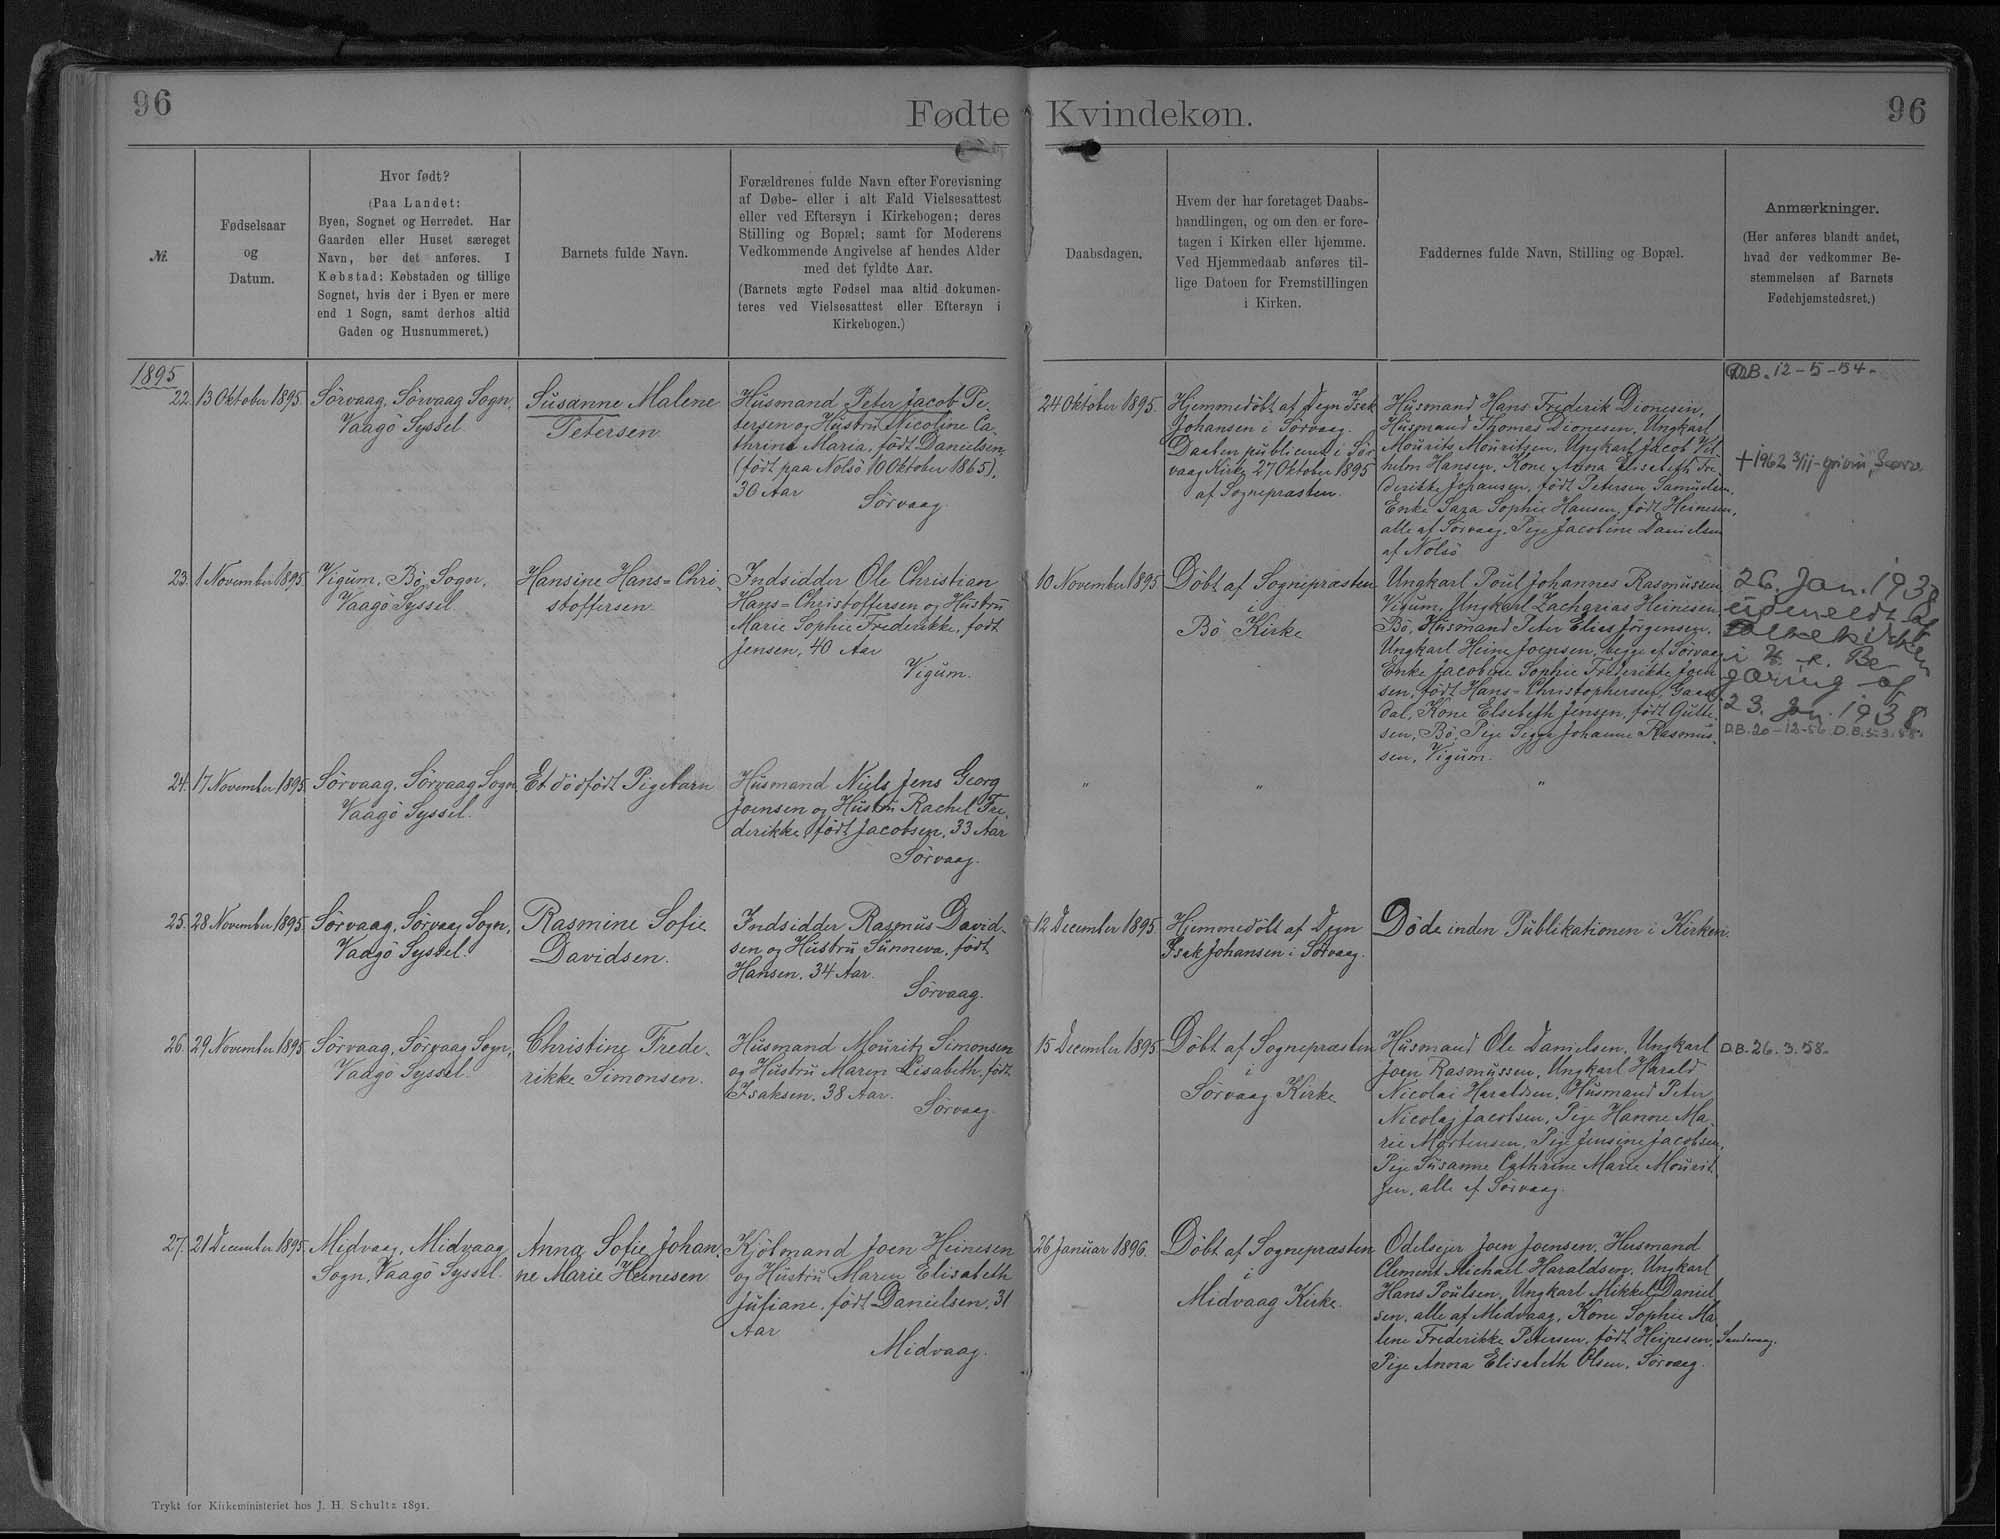 96
Fødte Kvindekøn.
96
№.
Fødselsaar
og
Datum.
Hvor født?
(Paa Landet:
Byen, Sognet og Herredet. Har
Gaarden eller Huset særeget
Navn, bør det anføres. I
Købstad: Købstaden og tillige
Sognet, hvis der i Byen er mere
end 1 Sogn, samt derhos altid
Gaden og Husnummeret.)
Barnets fulde Navn.
Forældrenes fulde Navn efter Forevisning
af Døbe- eller i alt Fald Vielsesattest
eller ved Eftersyn i Kirkebogen; deres
Stilling og Bopæl; samt for Moderens
Vedkommende Angivelse af hendes Alder
med det fyldte Aar.
(Barnets ægte Fødsel maa altid dokumen-
teres ved Vielsesattest eller Eftersyn i
Kirkebogen.)
Daabsdagen.
Hvem der har foretaget Daabs-
handlingen, og om den er fore-
tagen i Kirken eller hjemme.
Ved Hjemmedaab anføres til-
lige Datoen for Fremstillingen
i Kirken.
Faddernes fulde Navn, Stilling og Bopæl.
Anmærkninger.
(Her anføres blandt andet,
hvad der vedkommer Be-
stemmelsen af Barnets
Fødehjemstedsret.)
1895
22.
13 Oktober 1895.
Sörvaag, Sörvaag Sogn,
Vaagö Syssel.
Susanne Malene
Petersen
Husmand Peter Jacob Pe-
tersen og Hustru Nicoline Ca-
thrine Maria, födt Danielsen
(födt paa Nolsö 10 Oktober 1865),
30 Aar
Sörvaag.
24 Oktober 1895.
Hjemmedöbt af Degn Isak
Johansen i Sörvaag.
Daaben publiceret i Sör-
vaag Kirke 27 Oktober 1895
af Sognepræsten.
Husmand Hans Frederik Dionesin,
Husmand Thomas Dionesen, Ungkarl
Mourits Mouritsen, Ungkarl Jacob Vil-
helm Hansen, Kone Anna Elisabeth Fre-
derikke Johansen, födt Petersen Samuelsen,
Enke Sara Sophie Hansen, födt Heinesen,
alle af Sörvaag, Pige Jacobine Danielsen
af Nolsö
D.B. 12-5-54.
+1962 3/11
23.
1 November 1895.
Vigum, Bö Sogn,
Vaagö Syssel.
Hansine Hans=Chri-
stoffersen
Indsidder Ole Christian
Hans=Christoffersen og Hustru
Marie Sophie Frederikke, födt
Jensen, 40 Aar
Vigum.
10 November 1895
Döbt af Sognepræsten
i
Bö Kirke
Ungkarl Poul Johannes Rasmussen
Vigum, Ungkarl Zacharias Heinesen
Bö, Husmand Peter Elias Jörgensen,
Ungkarl Heine Joensen, begge af Sörvaag
Enke Jacobine Sophie Frederikke Joen-
sen, födt Hans=Christophersen, Gaasa-
dal, Kone Elsebeth Jensen, födt Gutte-
sen, Bö, Pige Johanne Rasmus-
sen, Vigum.
26. Jan. 1938
udmeldt af
Folkekirken
i H. t. Be-
gæring af
23. Jan. 1938
D.B. 20-12-56. D.B. 5-3-58.
24.
17 November 1895.
Sörvaag, Sörvaag Sogn
Vaagö Syssel.
Et dödfödt Pigebarn
Husmand Niels Jens Georg
Joensen og Hustru Rachel Fre-
derikke, födt Jacobsen, 33 Aar
Sörvaag.
"
"
"
25.
28 November 1895.
Sörvaag, Sörvaag Sogn,
Vaagö Syssel.
Rasmine Sofie
Davidsen.
Indsidder Rasmus David-
sen og Hustru Sunneva, födt
Hansen, 34 Aar.
Sörvaag.
12 December 1895
Hjemmedöbt af Degn
Isak Johansen i Sörvaag.
Döde inden Publikationen i Kirken.
26.
29 November 1895
Sörvaag, Sörvaag Sogn,
Vaagö Syssel.
Christine Frede-
rikke Simonsen.
Husmand Mouritz Simonsen
og Hustru Maren Elisabeth, födt
Isaksen, 38 Aar.
Sörvaag.
15 December 1895
Döbt af Sognepræsten
i
Sörvaag Kirke
Husmand Ole Danielsen, Ungkarl
Joen Rasmussen, Ungkarl Harald
Nicolai Haraldsen, Husmand Peter
Nicolaj Jacobsen, Pige Hanne Ma-
rie Mortensen, Pige Jensine Jacobsen,
Pige Susanne Cathrine Marie Mourit-
zen, alle af Sörvaag.
D.B. 26.3.58.
27.
21 December 1895.
Midvaag, Midvaag
Sogn, Vaagö Syssel.
Anna Sofie Johan-
ne Marie Heinesen
Kjöbmand Joen Heinesen
og Hustru Maren Elisabeth
Juliane, födt Danielsen, 31
Aar
Midvaag.
26 Januar 1896.
Döbt af Sognepræsten
i
Midvaag Kirke.
Odelsejer Joen Joensen, Husmand
Clement Michael Haraldsen, Ungkarl
Hans Poulsen, Ungkarl Mikkel Daniel-
sen, alle af Midvaag, Kone Sophie Ma-
lene Frederikke Petersen, födt Heinesen, Sandevaag.
Pige Anna Elisabeth Olsen, Sörvaag.
Trykt for Kirkeministeriet hos J. H. Schultz 1891.